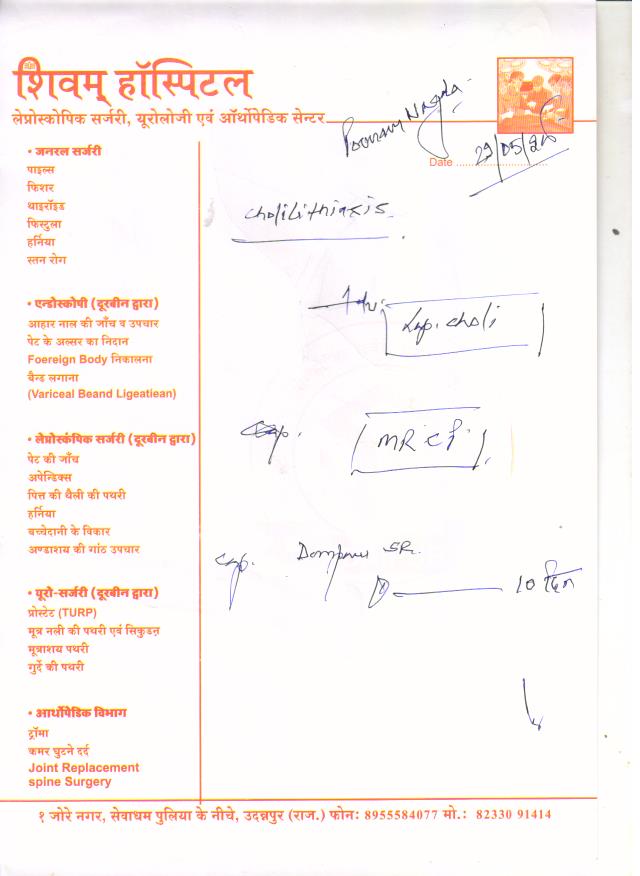 शिवम् हॉस्पिटल
लेप्रोस्कोपिक सर्जरी, यूरोलोजी एवं ऑर्थोपेडिक सेन्टर
Poonam Nagda
Date ........................ 29/05/26
• जनरल सर्जरी
पाइल्स
फिशर
थाइरॉइड
फिस्टुला
हर्निया
स्तन रोग
Cholilithiasis
Adv:
Lap. choli
• एन्डोस्कोपी (दूरबीन द्वारा)
आहार नाल की जाँच व उपचार
पेट के अल्सर का निदान
Foereign Body निकालना
बैन्ड लगाना
(Variceal Beand Ligeatiean)
MRCP
• लेप्रोस्कंपिक सर्जरी (दूरबीन द्वारा)
पेट की जाँच
अपेन्डिक्स
पित्त की थैली की पथरी
हर्निया
बच्चेदानी के विकार
अण्डाशय की गांठ उपचार
Cap. SR.
10 दिन
• यूरो-सर्जरी (दूरबीन द्वारा)
प्रोस्टेट (TURP)
मूत्र नली की पथरी एवं सिकुडन
मूत्राशय पथरी
गुर्दे की पथरी
• आर्थोपेडिक विभाग
ट्रॉमा
कमर घुटने दर्द
Joint Replacement
spine Surgery
१ जोरे नगर, सेवाधम पुलिया के नीचे, उदयपुर (राज.) फोन: 8955584077 मो.: 82330 91414